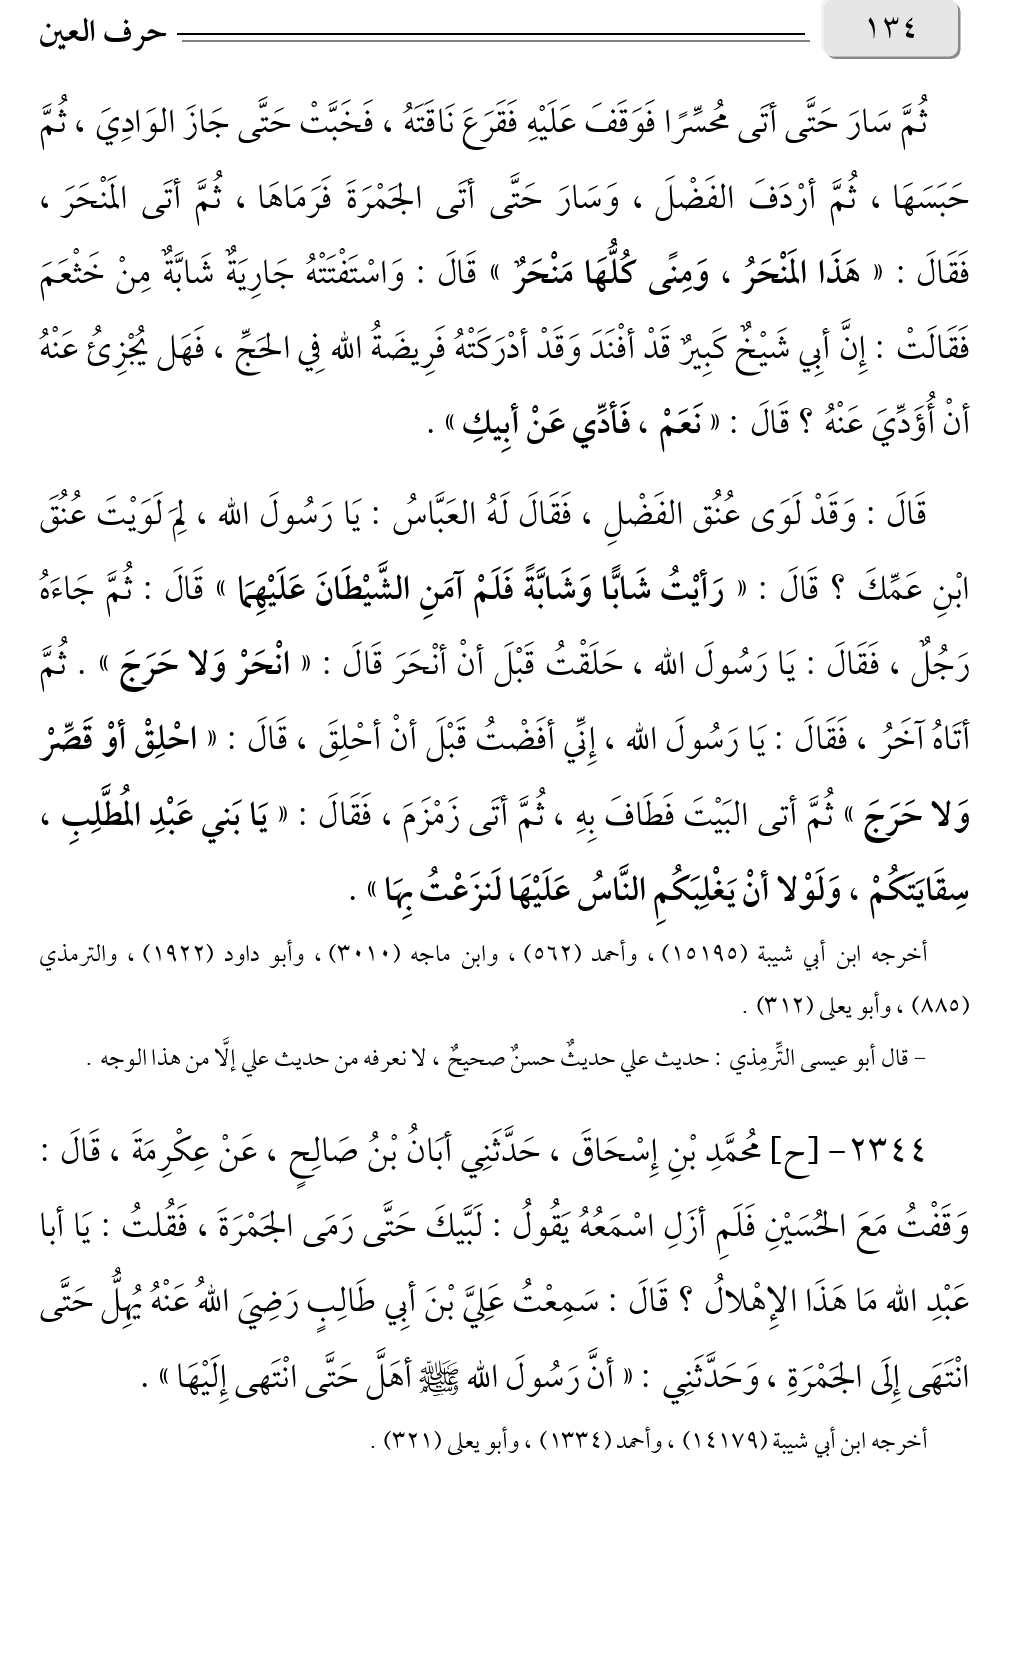 ١٣٤
حرف العين
ثُمَّ سَارَ حَتَّى أتَى مُحسِّرًا فَوَقَفَ عَلَيْهِ فَقَرَعَ نَاقَتَهُ ، فَخَبَّتْ حَتَّى جَازَ الوَادِيَ ، ثُمَّ
حَبَسَهَا ، ثُمَّ أرْدَفَ الفَضْلَ ، وَسَارَ حَتَّى أتَى الجَمْرَةَ فَرَمَاهَا ، ثُمَّ أتَى المَنْحَرَ ،
فَقَالَ : « هَذَا المَنْحَرُ ، وَمِنًى كُلُّهَا مَنْحَرٌ » قَالَ : وَاسْتَفْتَتْهُ جَارِيَةٌ شَابَّةٌ مِنْ خَثْعَمَ
فَقَالَتْ : إِنَّ أبِي شَيْخٌ كَبِيرٌ قَدْ أفْنَدَ وَقَدْ أدْرَكَتْهُ فَرِيضَةُ الله فِي الحَجِّ ، فَهَل يُجْزِئُ عَنْهُ
أنْ أُؤَدِّيَ عَنْهُ ؟ قَالَ : « نَعَمْ ، فَأدِّي عَنْ أبِيكِ » .
قَالَ : وَقَدْ لَوَى عُنُقَ الفَضْلِ ، فَقَالَ لَهُ العَبَّاسُ : يَا رَسُولَ الله ، لِمَ لَوَيْتَ عُنُقَ
ابْنِ عَمِّكَ ؟ قَالَ : « رَأيْتُ شَابًّا وَشَابَّةً فَلَمْ آمَنِ الشَّيْطَانَ عَلَيْهِمَا » قَالَ : ثُمَّ جَاءَهُ
رَجُلٌ ، فَقَالَ : يَا رَسُولَ الله ، حَلَقْتُ قَبْلَ أنْ أنْحَرَ قَالَ : « انْحَرْ وَلا حَرَجَ » . ثُمَّ
أتَاهُ آخَرُ ، فَقَالَ : يَا رَسُولَ الله ، إِنِّي أفَضْتُ قَبْلَ أنْ أحْلِقَ ، قَالَ : « احْلِقْ أوْ قَصِّرْ
وَلا حَرَجَ » ثُمَّ أتى البَيْتَ فَطَافَ بِهِ ، ثُمَّ أتَى زَمْزَمَ ، فَقَالَ : « يَا بَني عَبْدِ المُطَّلِبِ ،
سِقَايَتَكُمْ ، وَلَوْلا أنْ يَغْلِبَكُمِ النَّاسُ عَلَيْهَا لَنزَعْتُ بِهَا » .
أخرجه ابن أبي شيبة (١٥١٩٥) ، وأحمد (٥٦٢) ، وابن ماجه (٣٠١٠) ، وأبو داود (١٩٢٢) ، والترمذي
(٨٨٥) ، وأبو يعلى (٣١٢) .
– قال أبو عيسى التِّرمِذي : حديث علي حديثٌ حسنٌ صحيحٌ ، لا نعرفه من حديث علي إلَّا من هذا الوجه .
٢٣٤٤– [ح] مُحمَّدِ بْنِ إسْحَاقَ ، حَدَّثَنِي أبَانُ بْنُ صَالِحٍ ، عَنْ عِكْرِمَةَ ، قَالَ :
وَقَفْتُ مَعَ الحُسَيْنِ فَلَمِ أزَلِ اسْمَعُهُ يَقُولُ : لَبَّيكَ حَتَّى رَمَى الجَمْرَةَ ، فَقُلتُ : يَا أبا
عَبْدِ الله مَا هَذَا الإِهْلالُ ؟ قَالَ : سَمِعْتُ عَلِيَّ بْنَ أبِي طَالِبٍ رَضِيَ اللهُ عَنْهُ يُهِلُّ حَتَّى
انْتَهَى إِلَى الجَمْرَةِ ، وَحَدَّثَنِي : « أنَّ رَسُولَ الله ﷺ أهَلَّ حَتَّى انْتَهى إِلَيْهَا » .
أخرجه ابن أبي شيبة (١٤١٧٩) ، وأحمد (١٣٣٤) ، وأبو يعلى (٣٢١) .